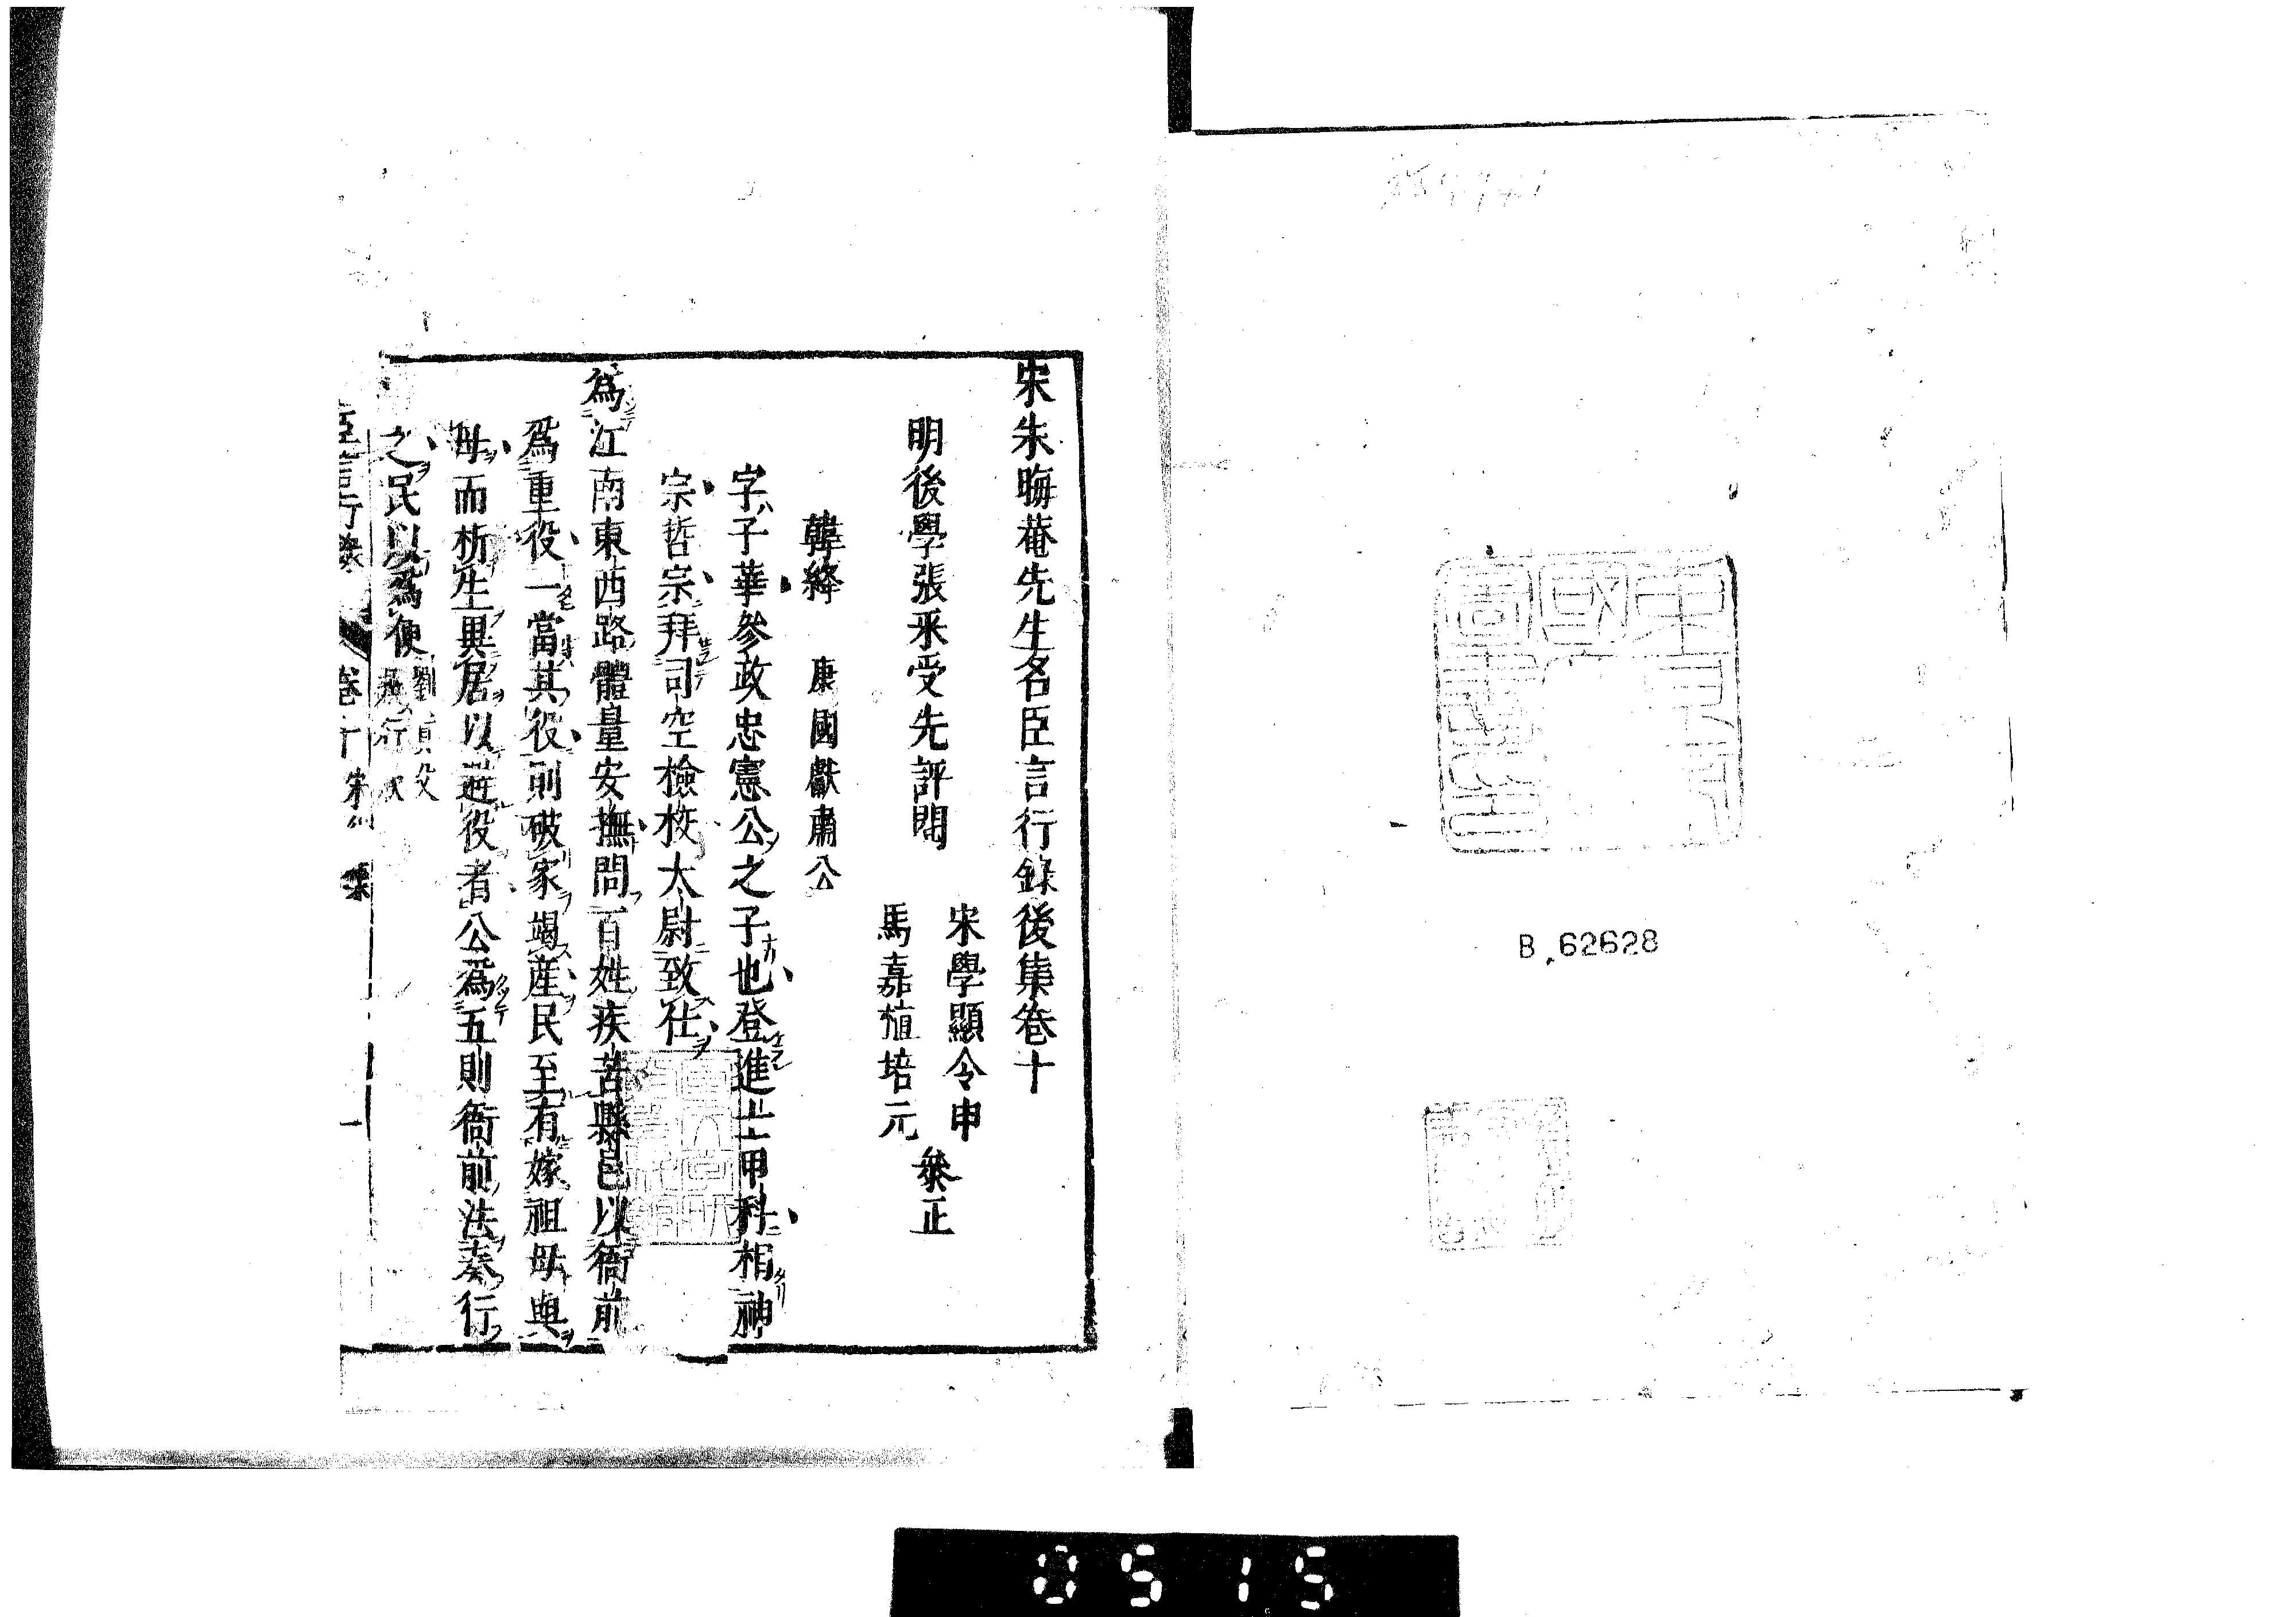 B 62628
宋朱晦菴先生名臣言行錄後集卷十
明後學張采受先評閱
宋學顯令申
馬嘉植培元
叅正
韓絳 康國獻肅公
字子華參政忠憲公之子也登進士甲科相神
宗哲宗拜司空檢校太尉致仕
為江南東西路體量安撫問百姓疾苦縣邑以衙前
為重役一當其役則破家竭產民至有嫁祖母與
母而析生異居以避役者公為五則衙前法奏行
之民以為便
劉貢父
行狀
臣言行錄 卷十 宋 後集
一
0515